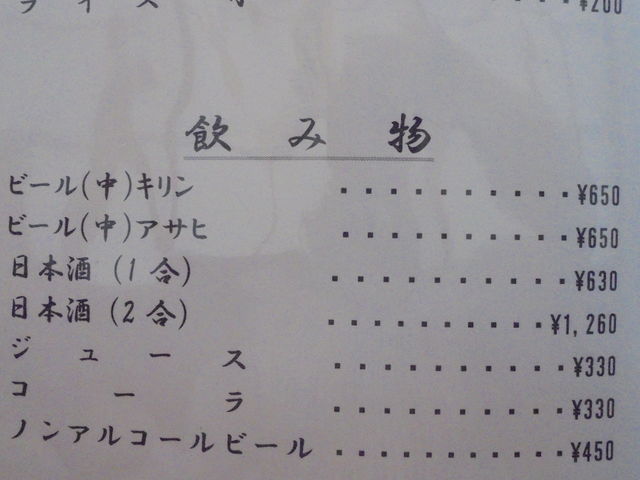 ライス ¥200
飲み物
ビール(中)キリン ・・・・・・・・・・¥650
ビール(中)アサヒ ・・・・・・・・・・¥650
日本酒(1合) ・・・・・・・・・・¥630
日本酒(2合) ・・・・・・・・・・¥1,260
ジュース ・・・・・・・・・・¥330
コーラ ・・・・・・・・・・¥330
ノンアルコールビール ・・・・・・・・・・¥450